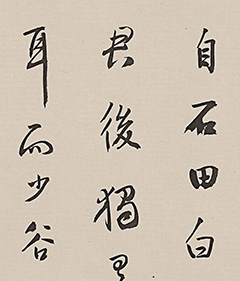 自石田白
君後獨
耳而少谷